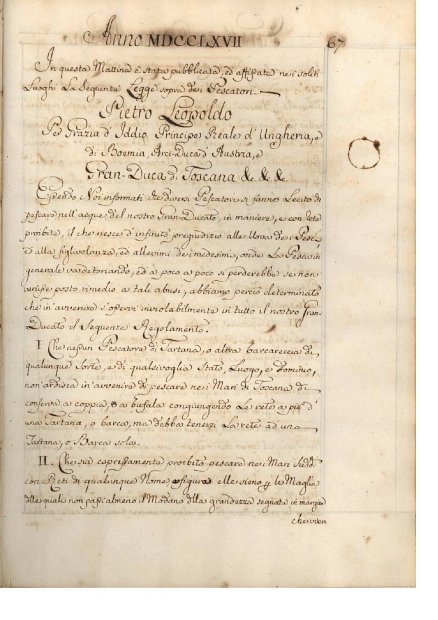 Anno MDCCLXVII
67
In questa Mattina è stata pubblicata, ed affissata nei soliti
Luoghi La Seguente Legge sopra dei Pescatori
Pietro Leopoldo
Per Grazia d'Iddio Principe Reale d'Ungheria, e
di Boemia, Arci-Duca d'Austria, e
Gran-Duca di Toscana &. &. &.
Essendo Noi informati che diversi Pescatori si fanno Lecito di
pescare nell'acque del nostro Gran-Ducato, in maniere, e con Reti
proibite, il che riesce d'infinito pregiudizio alle Uova dei Pesci
e alla figliolanza, ed allevimi dei medesimi, onde La Pesca in
generale va deteriorando, ed a poco a poco si perderebbe se non
venisse posto rimedio a tali abusi; abbiamo perciò determinato
che in avvenire s'osservi inviolabilmente in tutto il nostro Gran-
Ducato il Seguente Regolamento.
I. Che nessun Pescatore di Tartana, o altra barcareccia di
qualunque sorte, e di qualsivoglia Stato, Luogo, e dominio,
non ardisca in avvenire di pescare nei Mari di Toscana di
conserva a coppia, o a bufala congiungendo La rete a più d'
una Tartana, o barca, ma debba tenersi La rete ad una
Tartana, o Barca sola.
II. Che sia espressamente proibito pescare nei Mari
con Reti di qualunque Nome o figura elle sieno, per le Maglie
delle quali non passi almeno il Modano della grandezza segnata in margine